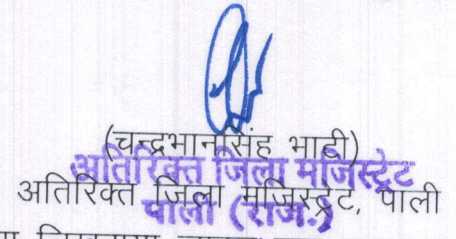 (चन्द्रभानसिंह भाटी)
अतिरिक्त जिला मजिस्ट्रेट
अतिरिक्त जिला मजिस्ट्रेट, पाली
पाली (राज.)